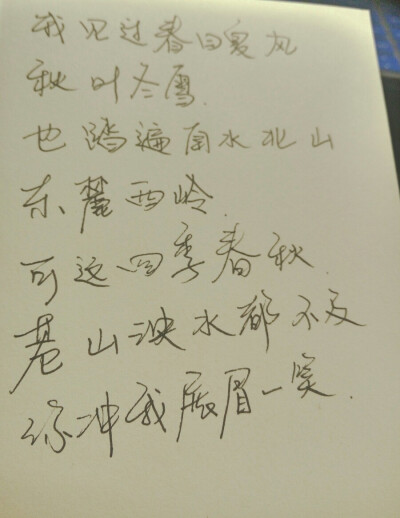 我见过春日夏风
秋叶冬雪.
也踏遍南水北山
东麓西岭.
可这四季春秋.
苍山泱水都不及
你冲我展眉一笑.